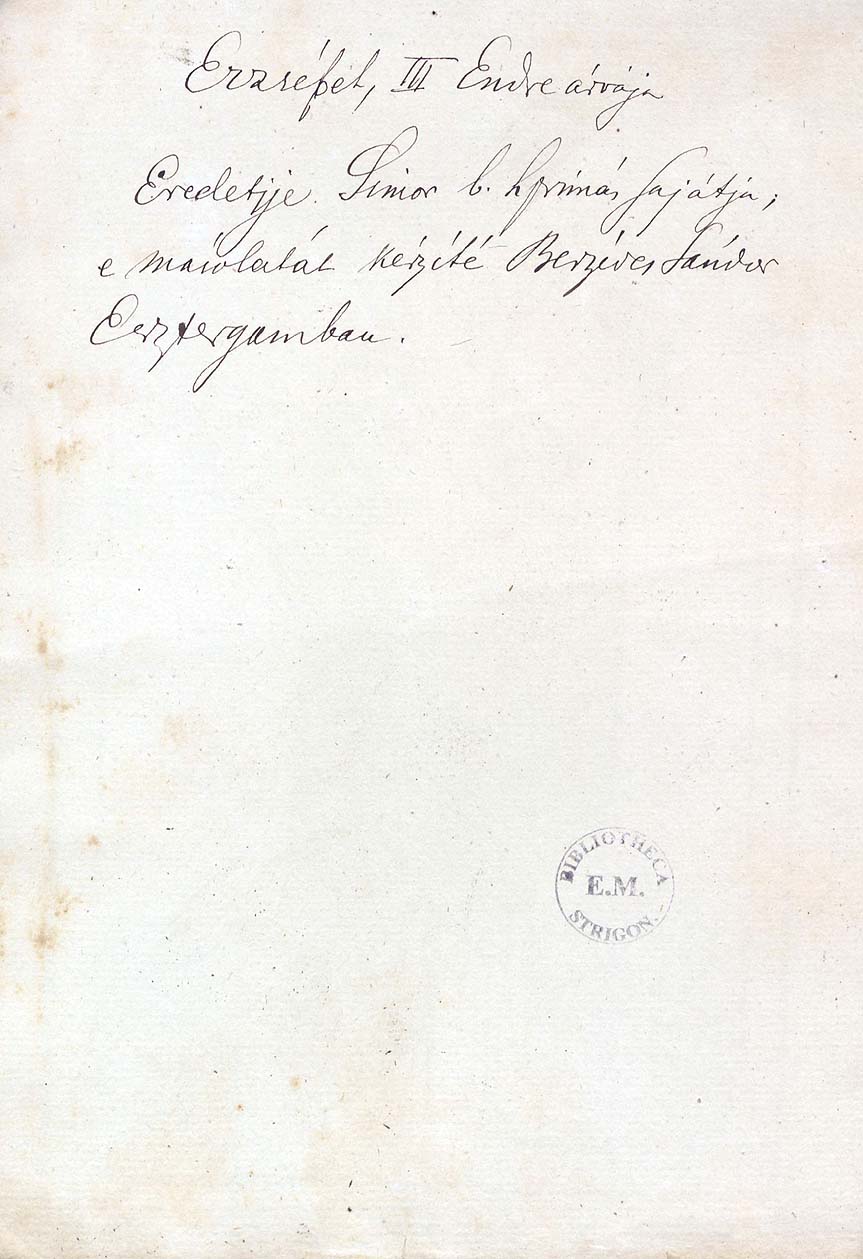 Erzsébet, III Endre árvája
Eredetije Simor b. hprimás sajátja;
e másolatát készíté Berzévics Sándor
Esztergomban.
BIBLIOTHECA
E.M.
STRIGON.